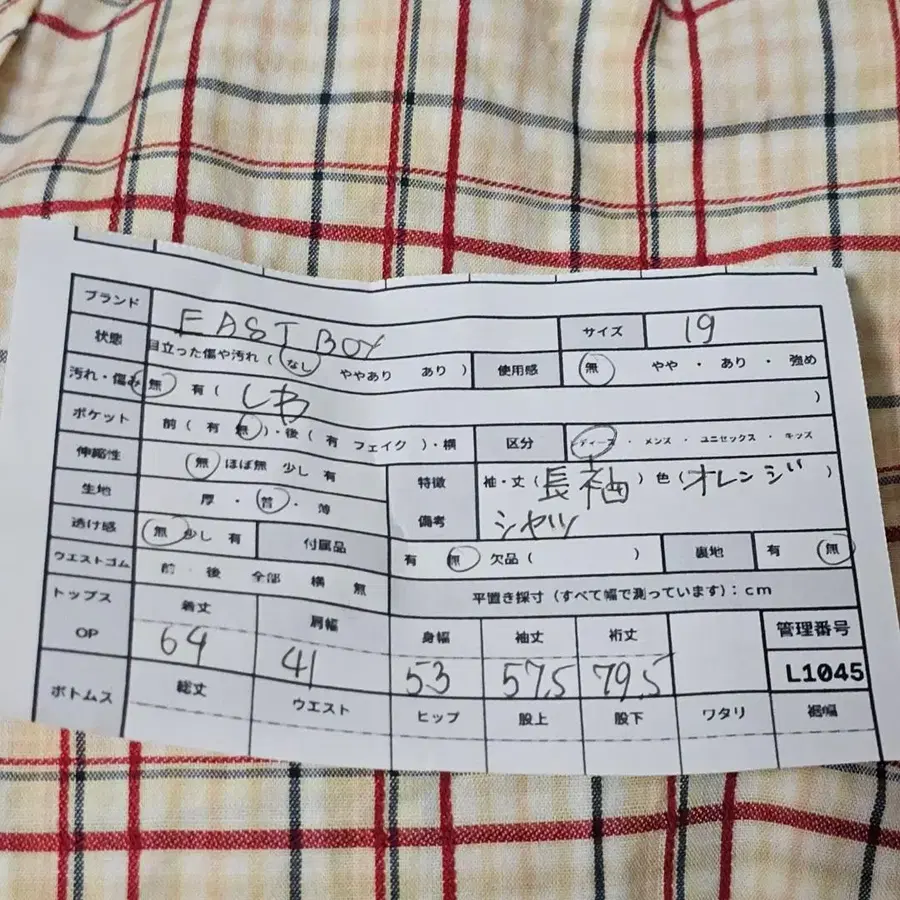 ブランド EAST BOY サイズ 19
状態 目立った傷や汚れ ( なし ややあり あり ) 使用感 無 やや ・ あり ・ 強め
汚れ・傷み 無 有 ( しわ )
ポケット 前 ( 有 無 )・後 ( 有 フェイク )・横 区分 レディース ・ メンズ ・ ユニセックス ・ キッズ
伸縮性 無 ほぼ無 少し 有 特徴 袖・丈 ( 長袖 ) 色 ( オレンジ )
生地 厚 ・ 普 ・ 薄 備考 シャツ
透け感 無 少し 有 付属品 有 無 欠品 ( ) 裏地 有 無
ウエストゴム 前 ・ 後 全部 横 無 平置き採寸 (すべて幅で測っています) : cm
トップス 着丈 肩幅 身幅 袖丈 裄丈 管理番号
OP 64 41 53 57.5 79.5 L1045
ボトムス 総丈 ウエスト ヒップ 股上 股下 ワタリ 裾幅